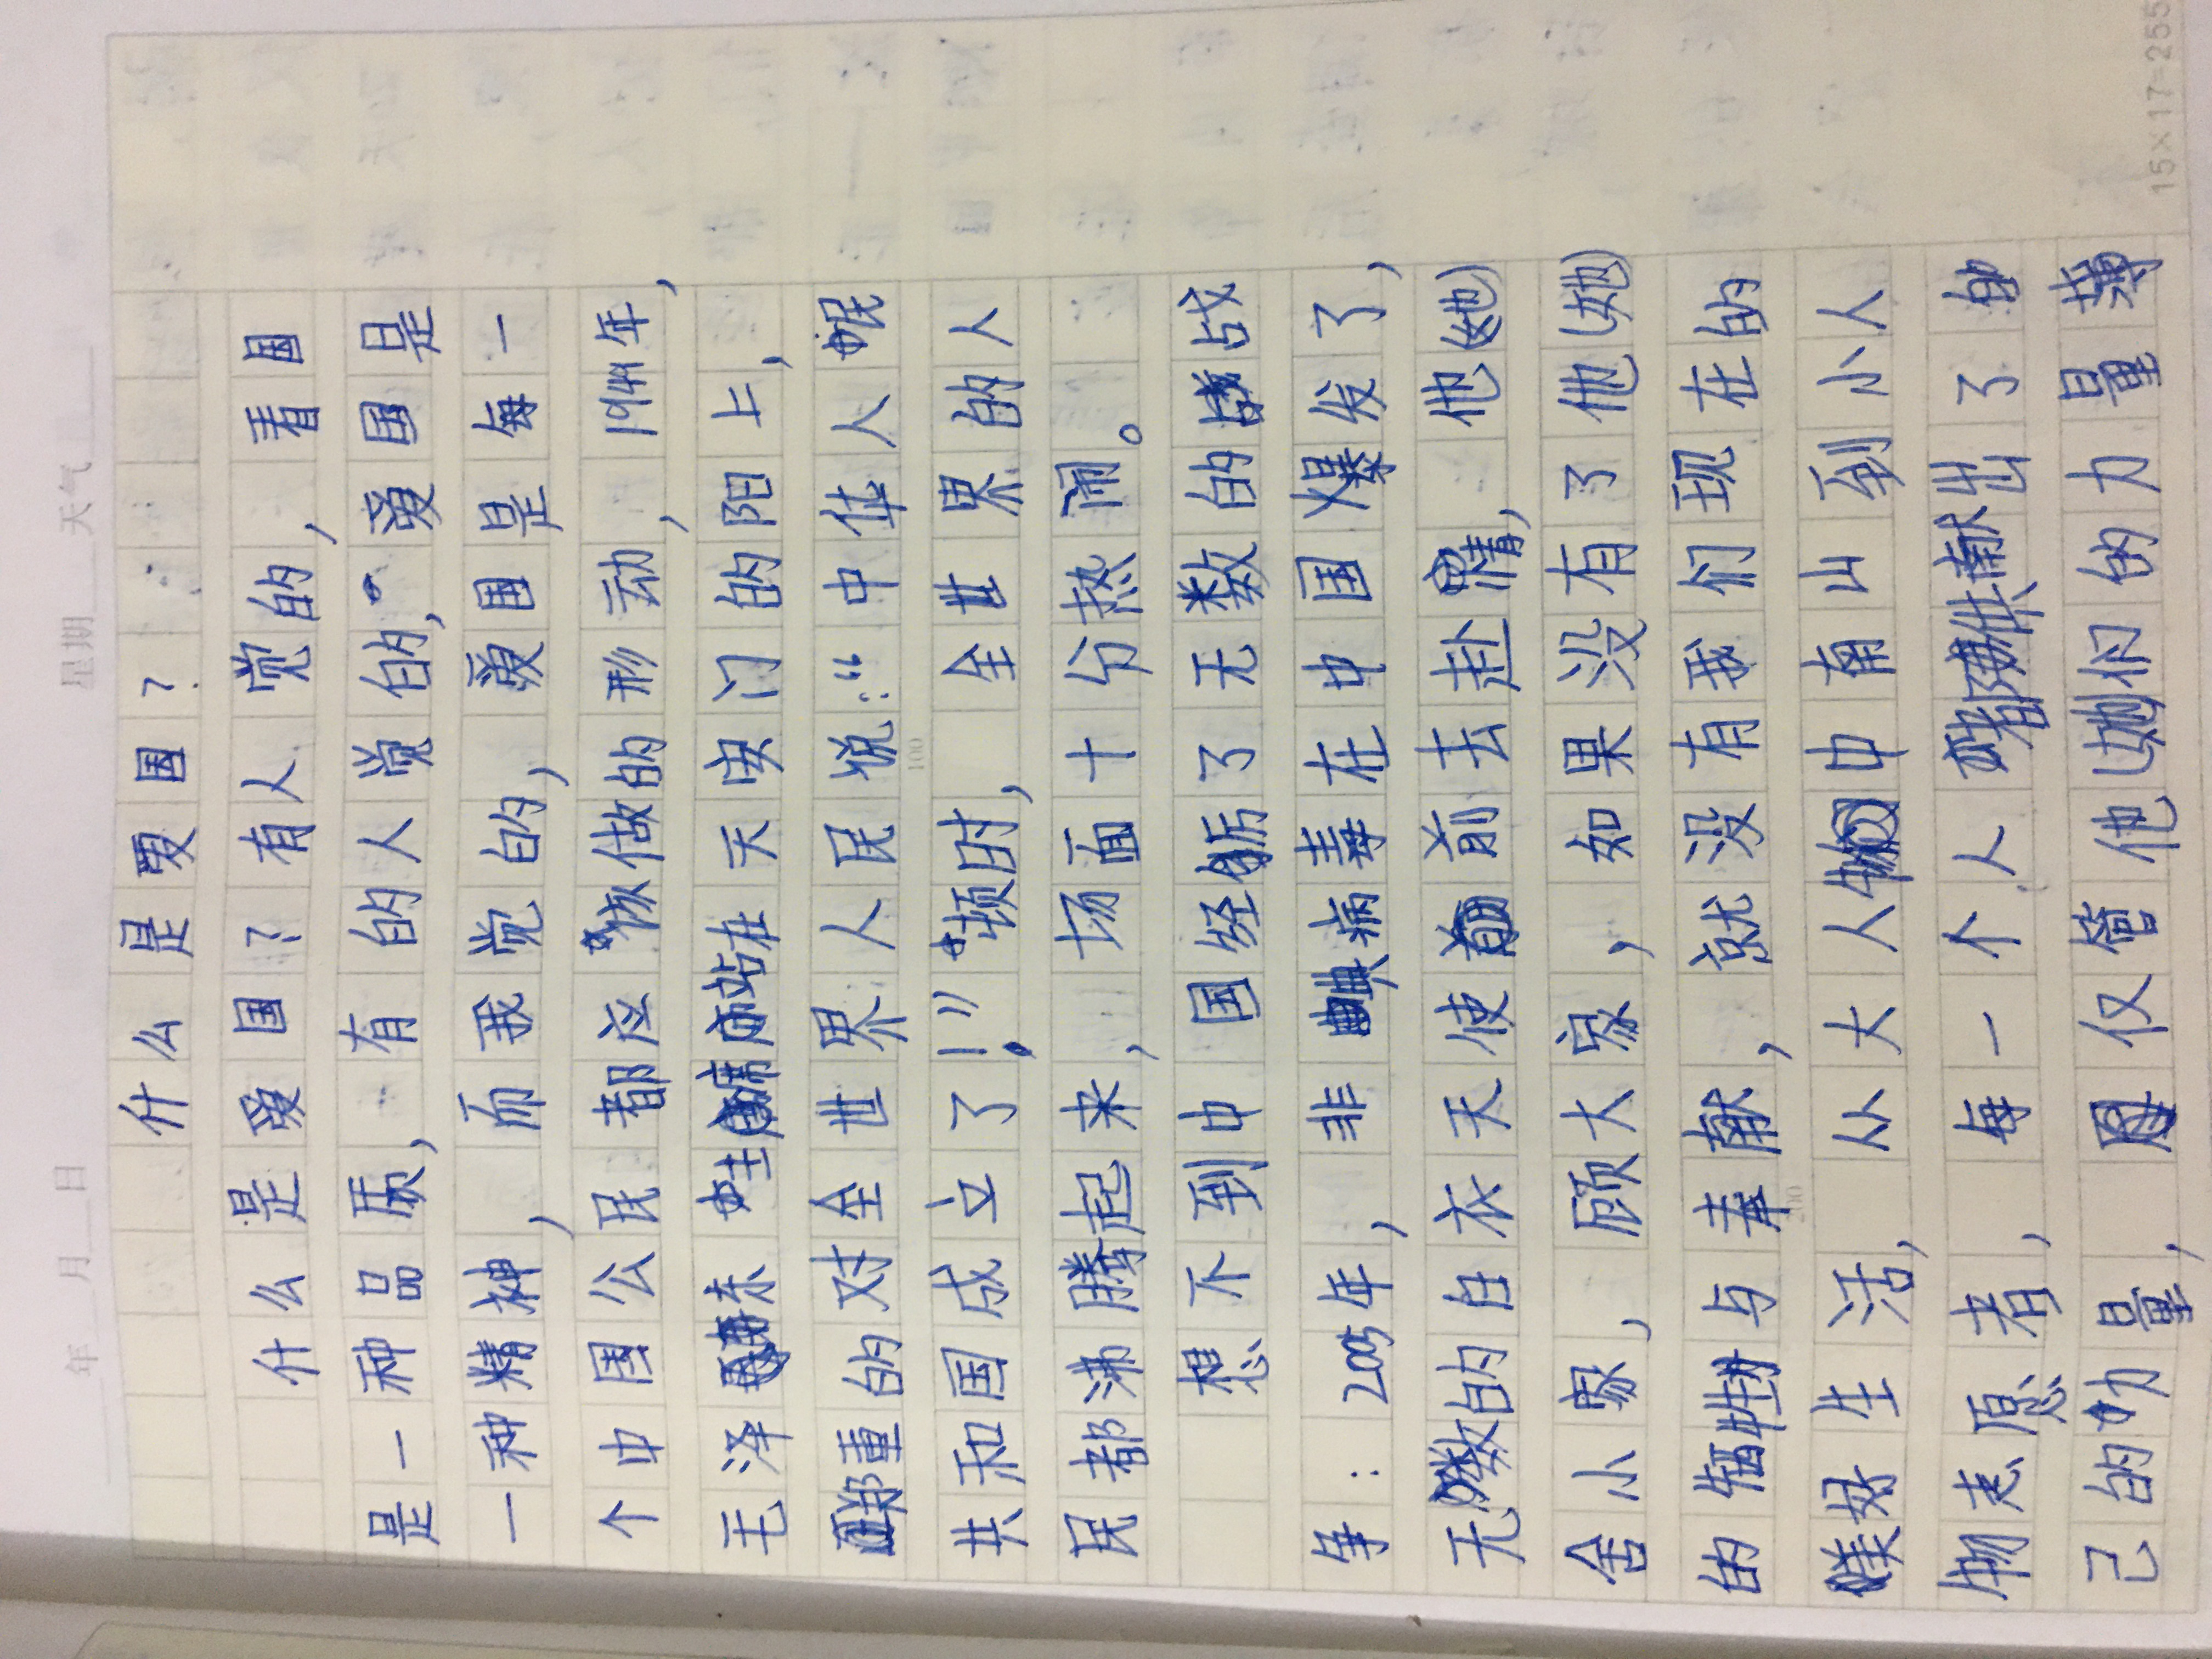 年 月 日 星期 天气
什么是爱国?
什么是爱国?有人觉的,看国
是一种品质,有的人觉的,爱国是
一种精神,而我觉的,爱国是每一
个中国公民都应该做的形动,1949年,
毛泽东主席站在天安门的阳上,
郑重的对全世界人民说:“中华人民
共和国成立了!”顿时,全世界的人
民都沸腾起来,场面十分热闹。
想不到中国经历了无数的战
争:2003年,非典病毒在中国爆发了,
无数的白衣天使前去赴清,他(她)
舍小家,顾大家,如果没有了他(她)
的牺牲与奉献,就没有我们现在的
美好生活,从大人物中南山到小人
物志愿者,每一个人都供献出了
己的力量,仅管他(她)们的力量薄
100
200
15×17=255